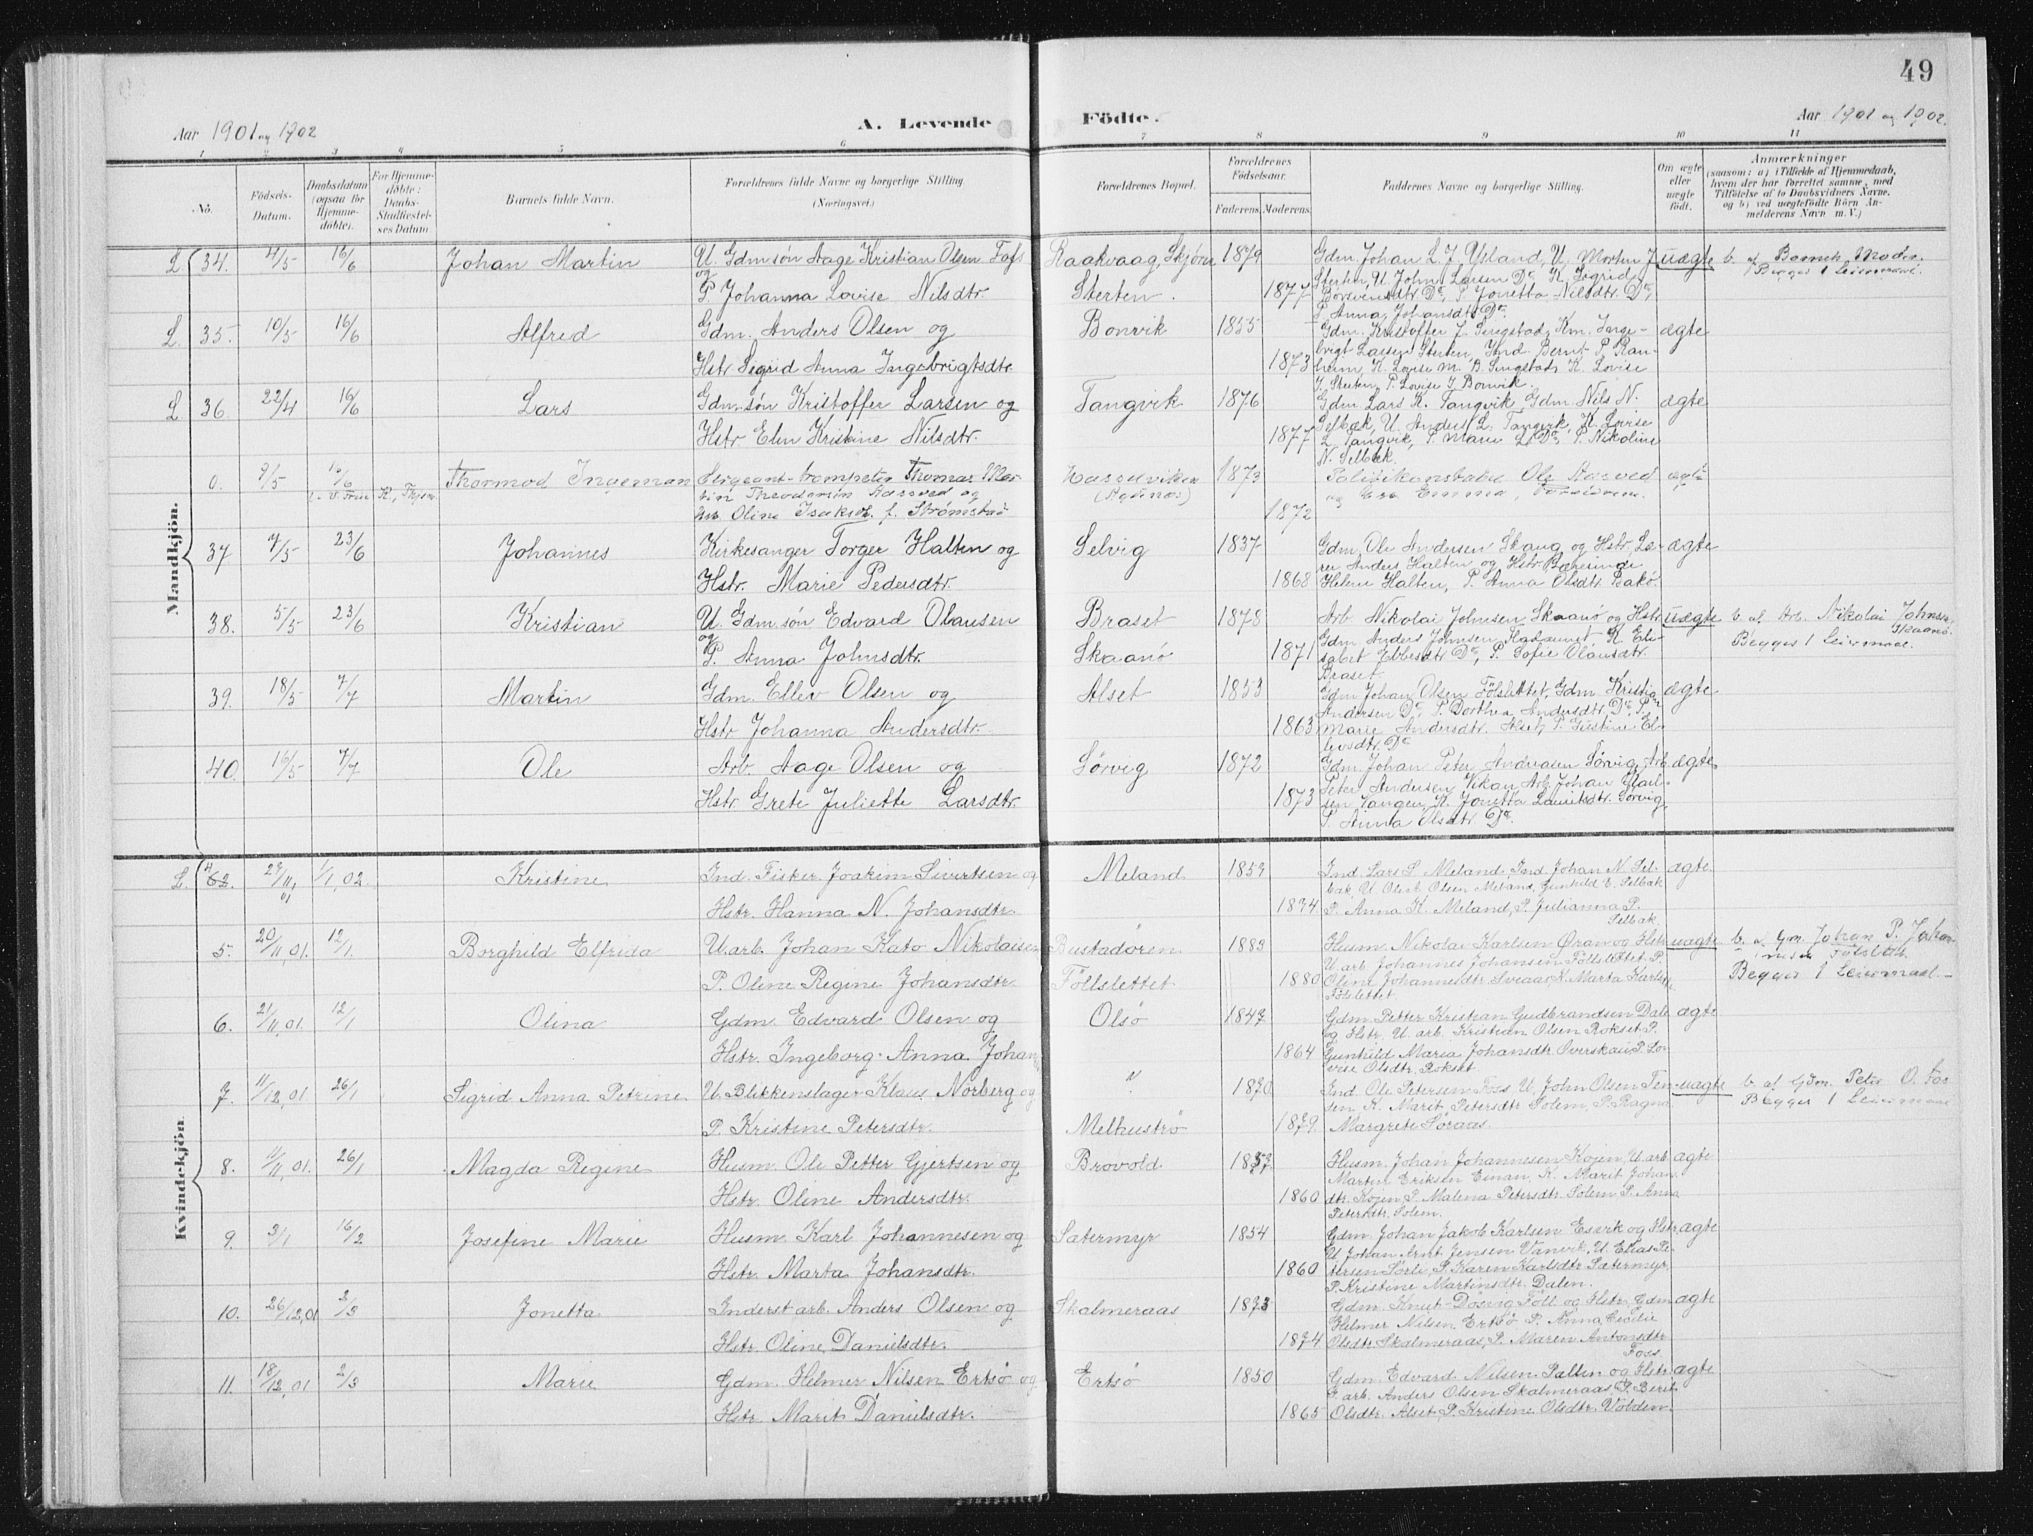 49
Aar 1901 og 1902
A. Levende Födte.
Aar 1901 og 1902.
1 2 3 4 5 6 7 8 9 10 11
No.
Födsels-Datum.
Daabsdatum (ogsaa for Hjemmedöbte).
For Hjemmedöbte: Daabs-Stadfæstelses Datum.
Barnets fulde Navn.
Forældrenes fulde Navne og borgerlige Stilling (Næringsvei.)
Forældrenes Bopæl.
Forældrenes Födselsaar.
Faderens. Moderens.
Faddernes Navne og borgerlige Stilling.
Om ægte eller uægte födt.
Anmærkninger
(saasom: a) i Tilfælde af Hjemmedaab, hvem der har forrettet samme, med Tilföielse af to Daabsvidners Navne, og b) ved uægtefödte Börn Anmelderens Navn m. V.)
Mandkjön.
L. 34. 4/5 16/6 Johan Martin U. Gdm.søn Aage Kristian Olsen Fors Raakvaag, Skjørn 1879 Gdm. Johan L. J. Ysland, U. Morten J. uægte b. af Barnets Moder.
og Sterten, U John Larsen Do, K. Sigrid Begges 1 Leiermaal.
P. Johanna Lovise Nilsdtr. Sterten. 1877 P. Jonetta Nilsdtr. Do,
P. Anna Johansdtr Do.
L. 35. 10/5 16/6 Alfred Gdm. Anders Olsen og Bonvik 1855 Gdm. Kristoffer J. Singstad, Km. Inge- ægte
Hstr. Sigrid Anna Ingebrigtsdtr 1873 brigt Larsen Sterten, Ind. Bernt P. Ran-
heim, K. Lovise M. B. Singstad, K. Lovise
J. Sterten, P. Lovise J. Bonvik.
L. 36. 22/4 16/6 Lars Gdm.søn Kristoffer Larsen og Tangvik 1876 Gdm. Lars K. Tangvik, Gdm. Nils N. ægte
Hstr. Elen Kristine Nilsdtr. 1877 Selbæk, U. Anders L. Tangvik, K. Lovise
L. Tangvik, P. Marie L. Do, P. Nikoline
N. Selbæk.
0. 9/5 Thormod Ingeman Sergeant-trompeter Thomas Mar- 1873 Politikonstabel Ole Aasved ægte
tin Theodorsen Aasved og (Agdenæs) og Emma,
Oline Isaksd. f. Strømstad 1872
37 7/5 23/6 Johannes Kirkesanger Torger Halten og Selvig 1837 Gdm. Ole Andersen Skaug og Hstr. Læ- ægte
Hstr. Marie Pedersdtr. 1868 rer Anders Halten og Hstr.
Helene Halten, P. Anna Olsdtr. Bakø.
38. 5/5 23/6 Kristian U. Gdm.søn Edvard Olausen Braset 1878 Arb. Nikolai Johnsen, Skaanø og Hstr. uægte b. af Arb. Nikolai Johnsen, Skaanø.
og Gdm. Anders Johnsen, K. Eli- Begges 1 Leiermaal.
P. Anna Johnsdtr. Skaanø 1871 sabet Ebbesdtr Do, P. Sofie Olausdtr.
Braset
39. 18/5 7/7 Martin Gdm. Ellev Olsen og Alset 1853 Gdm. Johan Olsen Fölslettet, Gdm Kristian ægte
Hstr. Johanna Andersdtr. 1863 Andersen Do, P. Dorthea Andersdtr. Do, P.
Marie Andersdtr. Alset, P. Justine El-
levsdtr. Do
40. 16/5 7/7 Ole Arb. Aage Olsen og Sörvig 1872 Gdm Johan Peter Andreasen Sörvig, Arb. ægte
Hstr. Grete Juliette Larsdtr. 1873 Peter Andersen Vikan, Arb. Johan
Vangen, K. Jonetta Lauritsdtr. Sörvig,
P. Anna Olsdtr Do.
Kvindekjön
L. 4 62. 29/11, 01 1/1, 02. Kristine Ind. Fisker Joakim Sivertsen og Meland 1859 Ind. Lars P. Meland, Ind. Johan N. Sel- ægte.
Hstr. Hanna N. Johansdtr. 1874 bak, U. Olsen Meland, Gunhild E. Selbak
P. Anna K. Meland, P. Julianna P.
Selbak.
5. 20/11, 01. 12/1. Borghild Elfrida U.arb. Johan Kato Nikolaisen Bustadören 1883 Husm. Nikolai Karlsen Øran og Hstr. uægte b. af Gm. Johan P. Johan-
P. Oline Regine Johansdtr. Föllslettet 1880 U.arb. Johannes Johansen Föllslettet P. nesen Fölslett
Oline Johannesdtr. Sveaas, K. Marta Karls Begges 1 Leiermaal.
Fölslettet.
6. 21/11, 01. 12/1 Olina Gdm. Edvard Olsen og Olsö 1847 Gdm. Petter Kristian Gudbrandsen Dale ægte
Hstr. Ingeborg Anna Johan 1864 og Hstr. U. arb. Kristian Olsen Rokset P.
Gunhild Maria Johansdtr. Overskau P. Lo-
vise Olsdtr. Rokset
7. 11/12, 01 26/1 Sigrid Anna Petrine U. Blikkenslager Klaus Norberg og " 1870 Ind. Ole Petersen Foss U. John Olsen uægte b. af Gdm. Peter O. Fos
P. Kristine Petersdtr. Melhustrø 1879. K. Marit Petersdtr Solem, P. Ragna Begges 1 Leiermaal
Margrete Søraas.
8. 11/11, 01. 26/1 Magda Regine Husm. Ole Petter Gjertsen og Brovold 1853 Husm. Johan Johannesen Kojen, U. arb. ægte
Hstr. Oline Andersdtr. 1860 Martin Eriksen Einan, K. Marit Johan.
dtr. Kojen P. Malena Petersdtr. Solem P. Anna
Petersdtr. Solem.
9. 3/1 16/2 Josefine Marie Husm. Karl Johannesen og Sætermyr 1854 Gdm. Johan Jakob Karlsen Esvik og Hstr. ægte
Hstr. Marta Johansdtr. 1860 U Johan Arnt Jensen Vanvik, U. Elias Pe-
tersen Sörli, P. Karen Karlsdtr Sætermyr,
P. Kristine Martinsdtr. Dalen.
10. 26/12, 01 2/3 Jonetta Inderst arb. Anders Olsen og Skalmeraas 1873 Gdm. Knut Dösvig Föll og Hstr. Gdm ægte
Hstr. Oline Danielsdtr. 1874 Helmer Nilsen, Ertsø P. Anna Cecilie
Olsdtr. Skalmeraas, P. Maren Antonsdtr.
Foss.
11. 18/12, 01 2/3 Marie Gdm. Helmer Nilsen Ertsø og Ertsø 1850 Gdm. Edvard Nilsen Palten og Hstr. ægte
Hstr. Marit Danielsdtr. 1865 F. arb. Anders Olsen Skalmeraas, P. Berit
Olsdtr. Alset, P. Kristine Olsdtr. Volden.